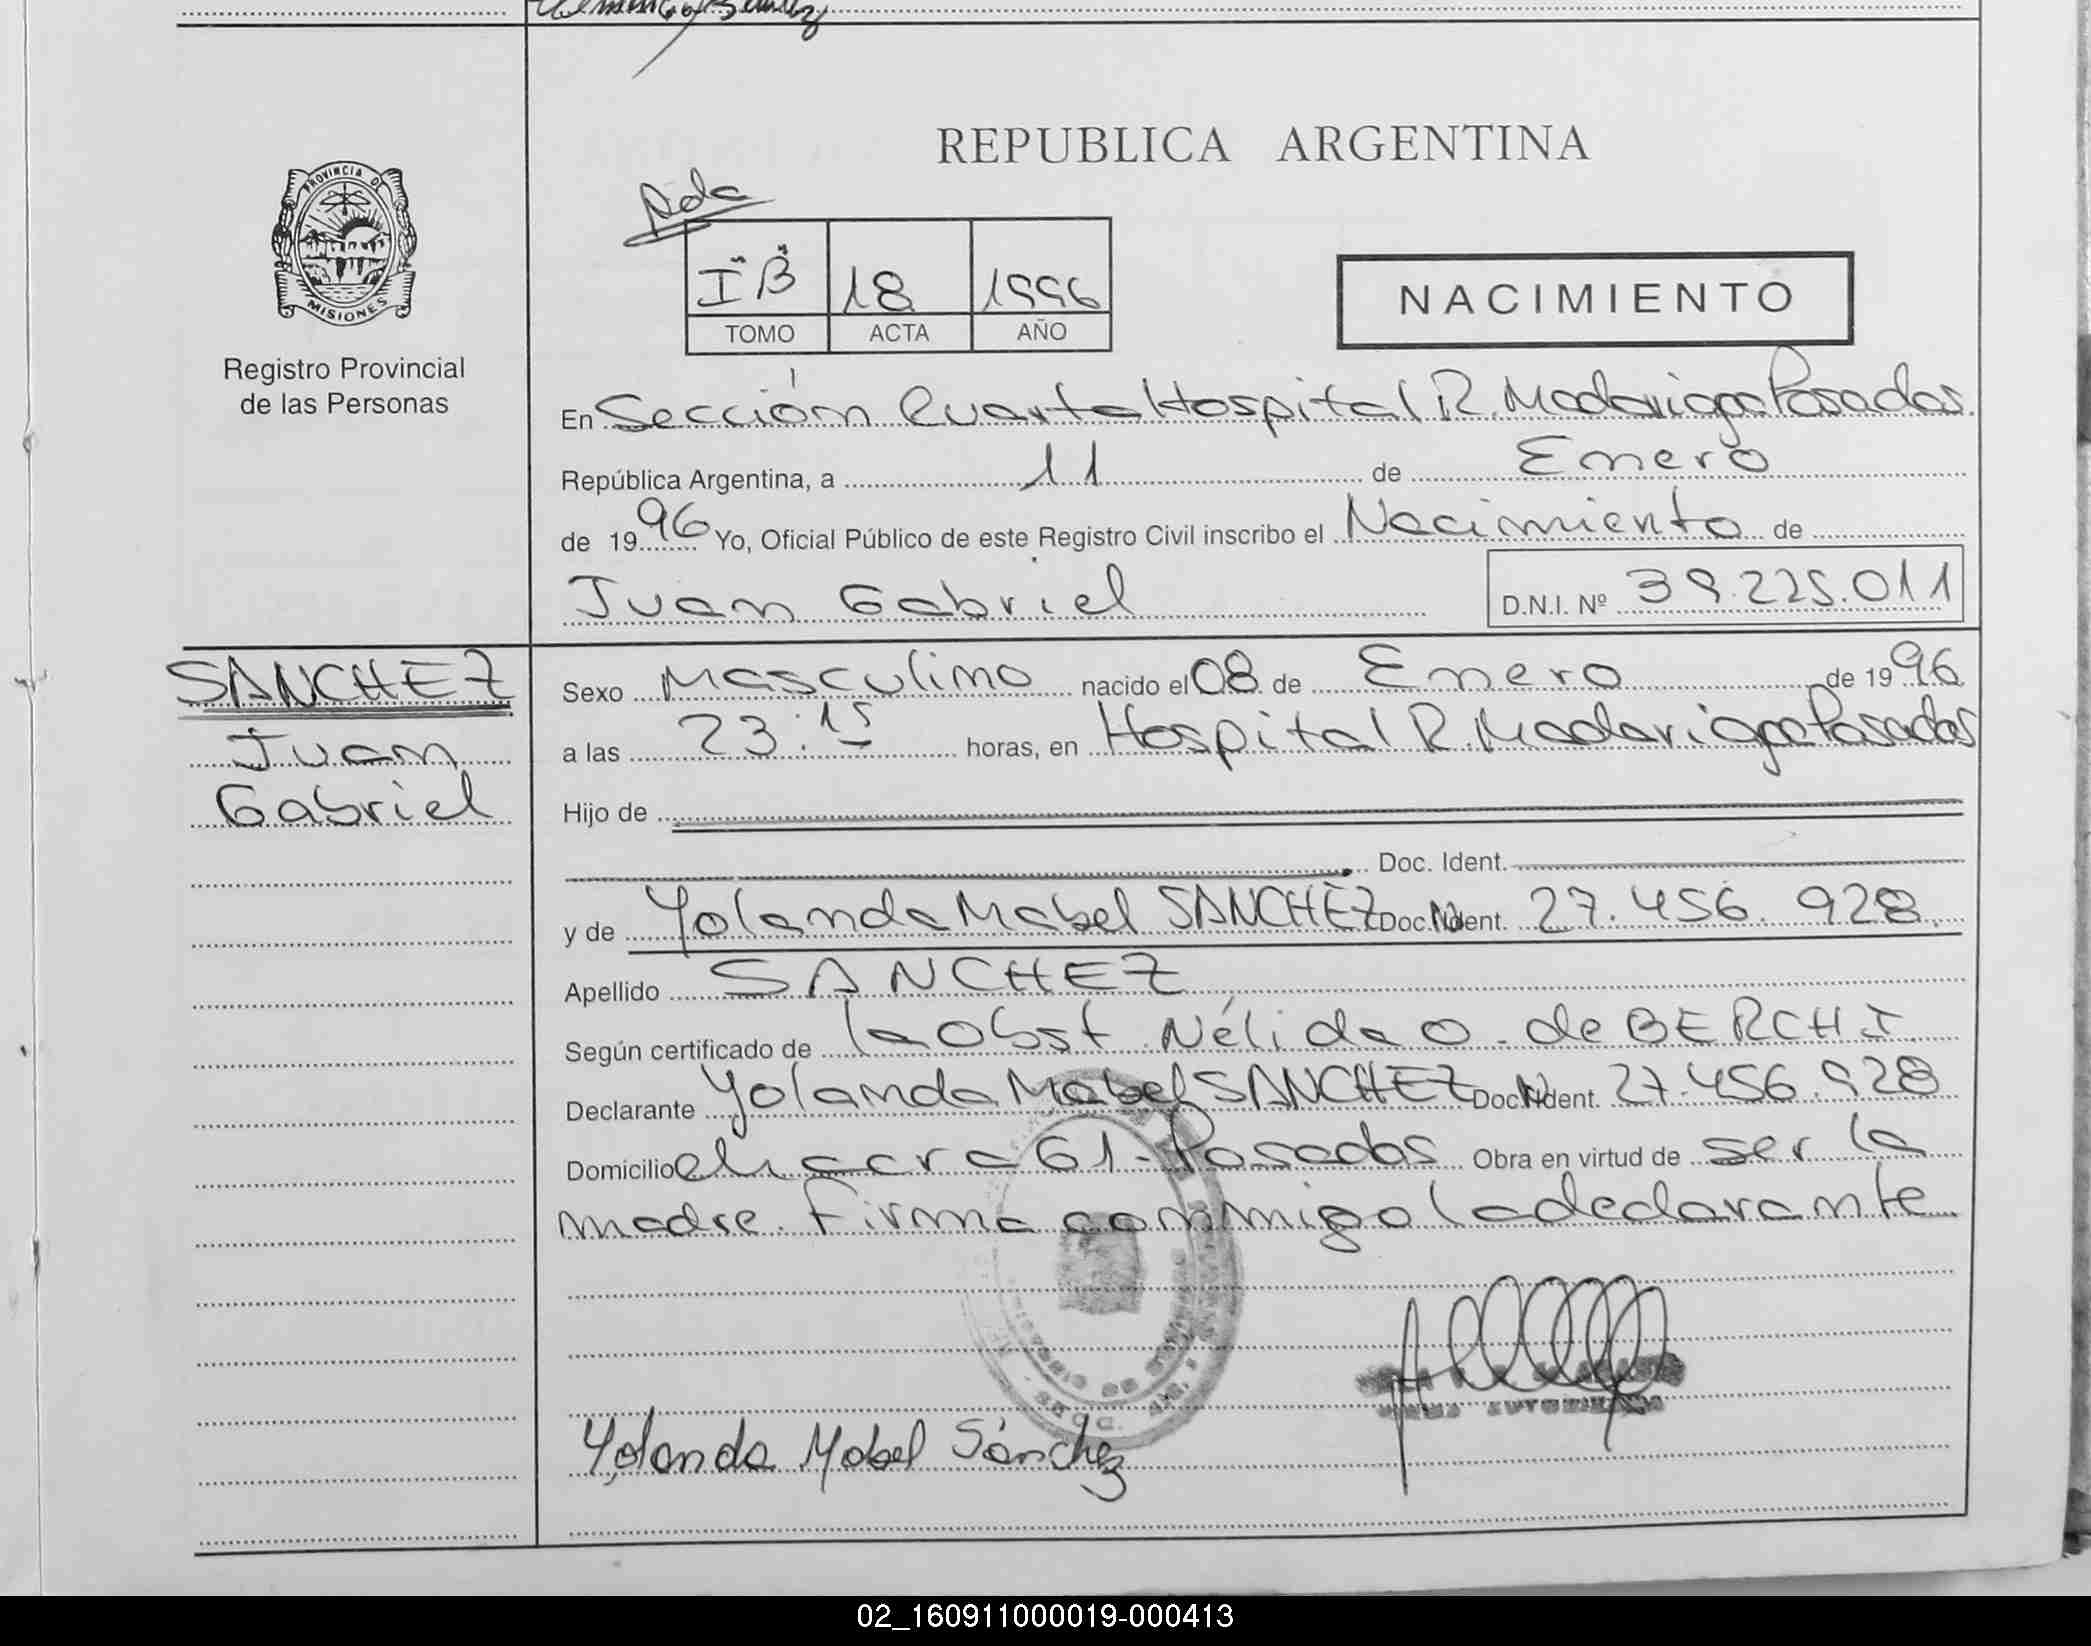 REPUBLICA ARGENTINA
PROVINCIA DE
MISIONES
Registro Provincial
de las Personas
Rda
I "B" 18 1996
TOMO ACTA AÑO
NACIMIENTO
En Sección Cuarta Hospital R. Madariaga Posadas
República Argentina, a 11 de Enero
de 1996 Yo, Oficial Público de este Registro Civil inscribo el Nacimiento de
Juan Gabriel D.N.I. Nº 39.225.011
SANCHEZ
Juan
Gabriel
Sexo Masculino nacido el 08 de Enero de 1996
a las 23:15 horas, en Hospital R. Madariaga Posadas
Hijo de
Doc. Ident.
y de Yolanda Mabel SANCHEZ Doc. Ident. 27.456.928
Apellido SANCHEZ
Según certificado de la Obst. Nélida O. de BERCHI
Declarante Yolanda Mabel SANCHEZ Doc. Ident. 27.456.928
Domicilio chacra 61 - Posadas Obra en virtud de ser la
madre. Firma conmigo la declarante
Yolanda Mabel Sánchez
02_160911000019-000413